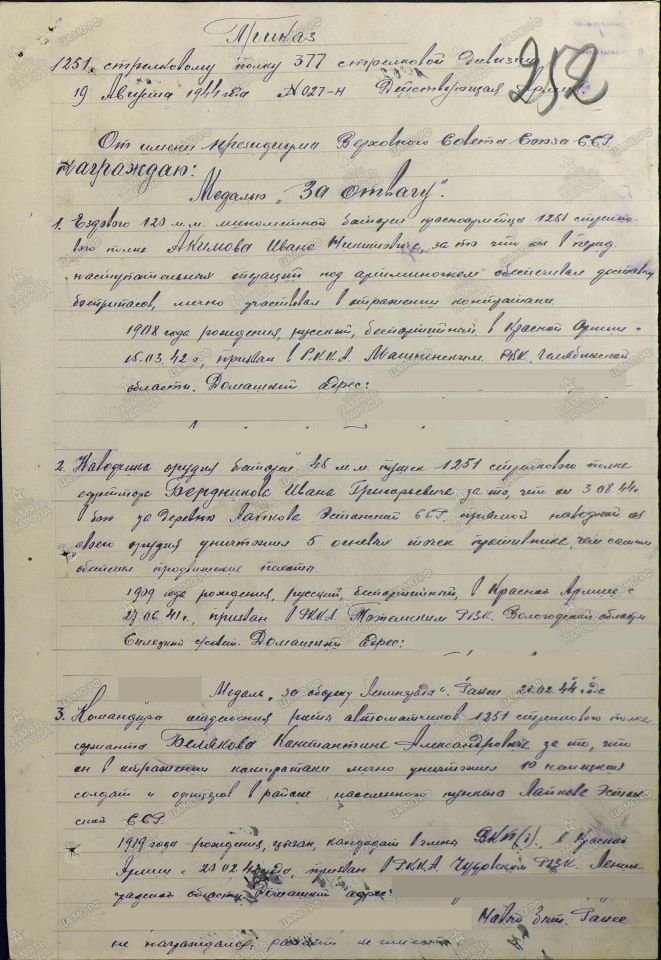 Приказ
1251 стрелковому полку 377 стрелковой дивизии
252
19 Августа 1944 года №027-н Действующая Армия
От имени президиума Верховного Совета Союза ССР
Награждаю:
Медалью „За отвагу".
1. Ездового 120 м.м. минометной батареи красноармейца 1251 стрелко-
вого полка Акимова Ивана Никитовича, за то что он в период
наступательных операций под артминогнем обеспечивал доставку
боеприпасов, лично участвовал в отражении контратаки.
1908 года рождения, русский, беспартийный, в Красной Армии с
15.03.42 г., призван в РККА РВК, Челябинской
области. Домашний адрес:
2. Наводчика орудия батареи 45 м.м. пушек 1251 стрелкового полка
ефрейтора Бердникова Ивана Григорьевича за то, что он 3.08.44г.
в бою за деревню Лапкова Эстонской ССР прямой наводкой из
своего орудия уничтожил 5 огневых точек противника, чем самым
обеспечил продвижение пехоты
1909 года рождения, русский, беспартийный, в Красной Армии с
27.06.41г., призван в РККА Тотемским РВК. Вологодской области
Домашний адрес:
Медаль „за оборону Ленинграда". Ранен 21.02.44 года
3. Командира отделения роты автоматчиков 1251 стрелкового полка
сержанта Белякова Константина Александровича за то, что
он в отражении контратаки лично уничтожил 10 немецких
солдат и офицеров в районе населенного пункта Лапкова Эстон-
ской ССР.
1919 года рождения, цыган, кандидат в члены ВКП(б), в Красной
Армии с 23.02.42 года, призван в РККА Чудовским РВК. Ленин-
градской области. Домашний адрес:
Ранее
не награждался, ранений не имеет